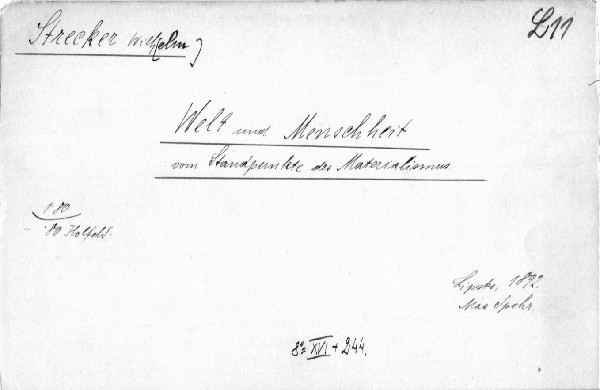 L11
Strecker Wilhelm)
Welt und Menschheit
vom Standpunkte des Materialismus.
1·80
80 Holfeld.
Lipsko, 1892.
Max Spohr.
8° XVI + 244.